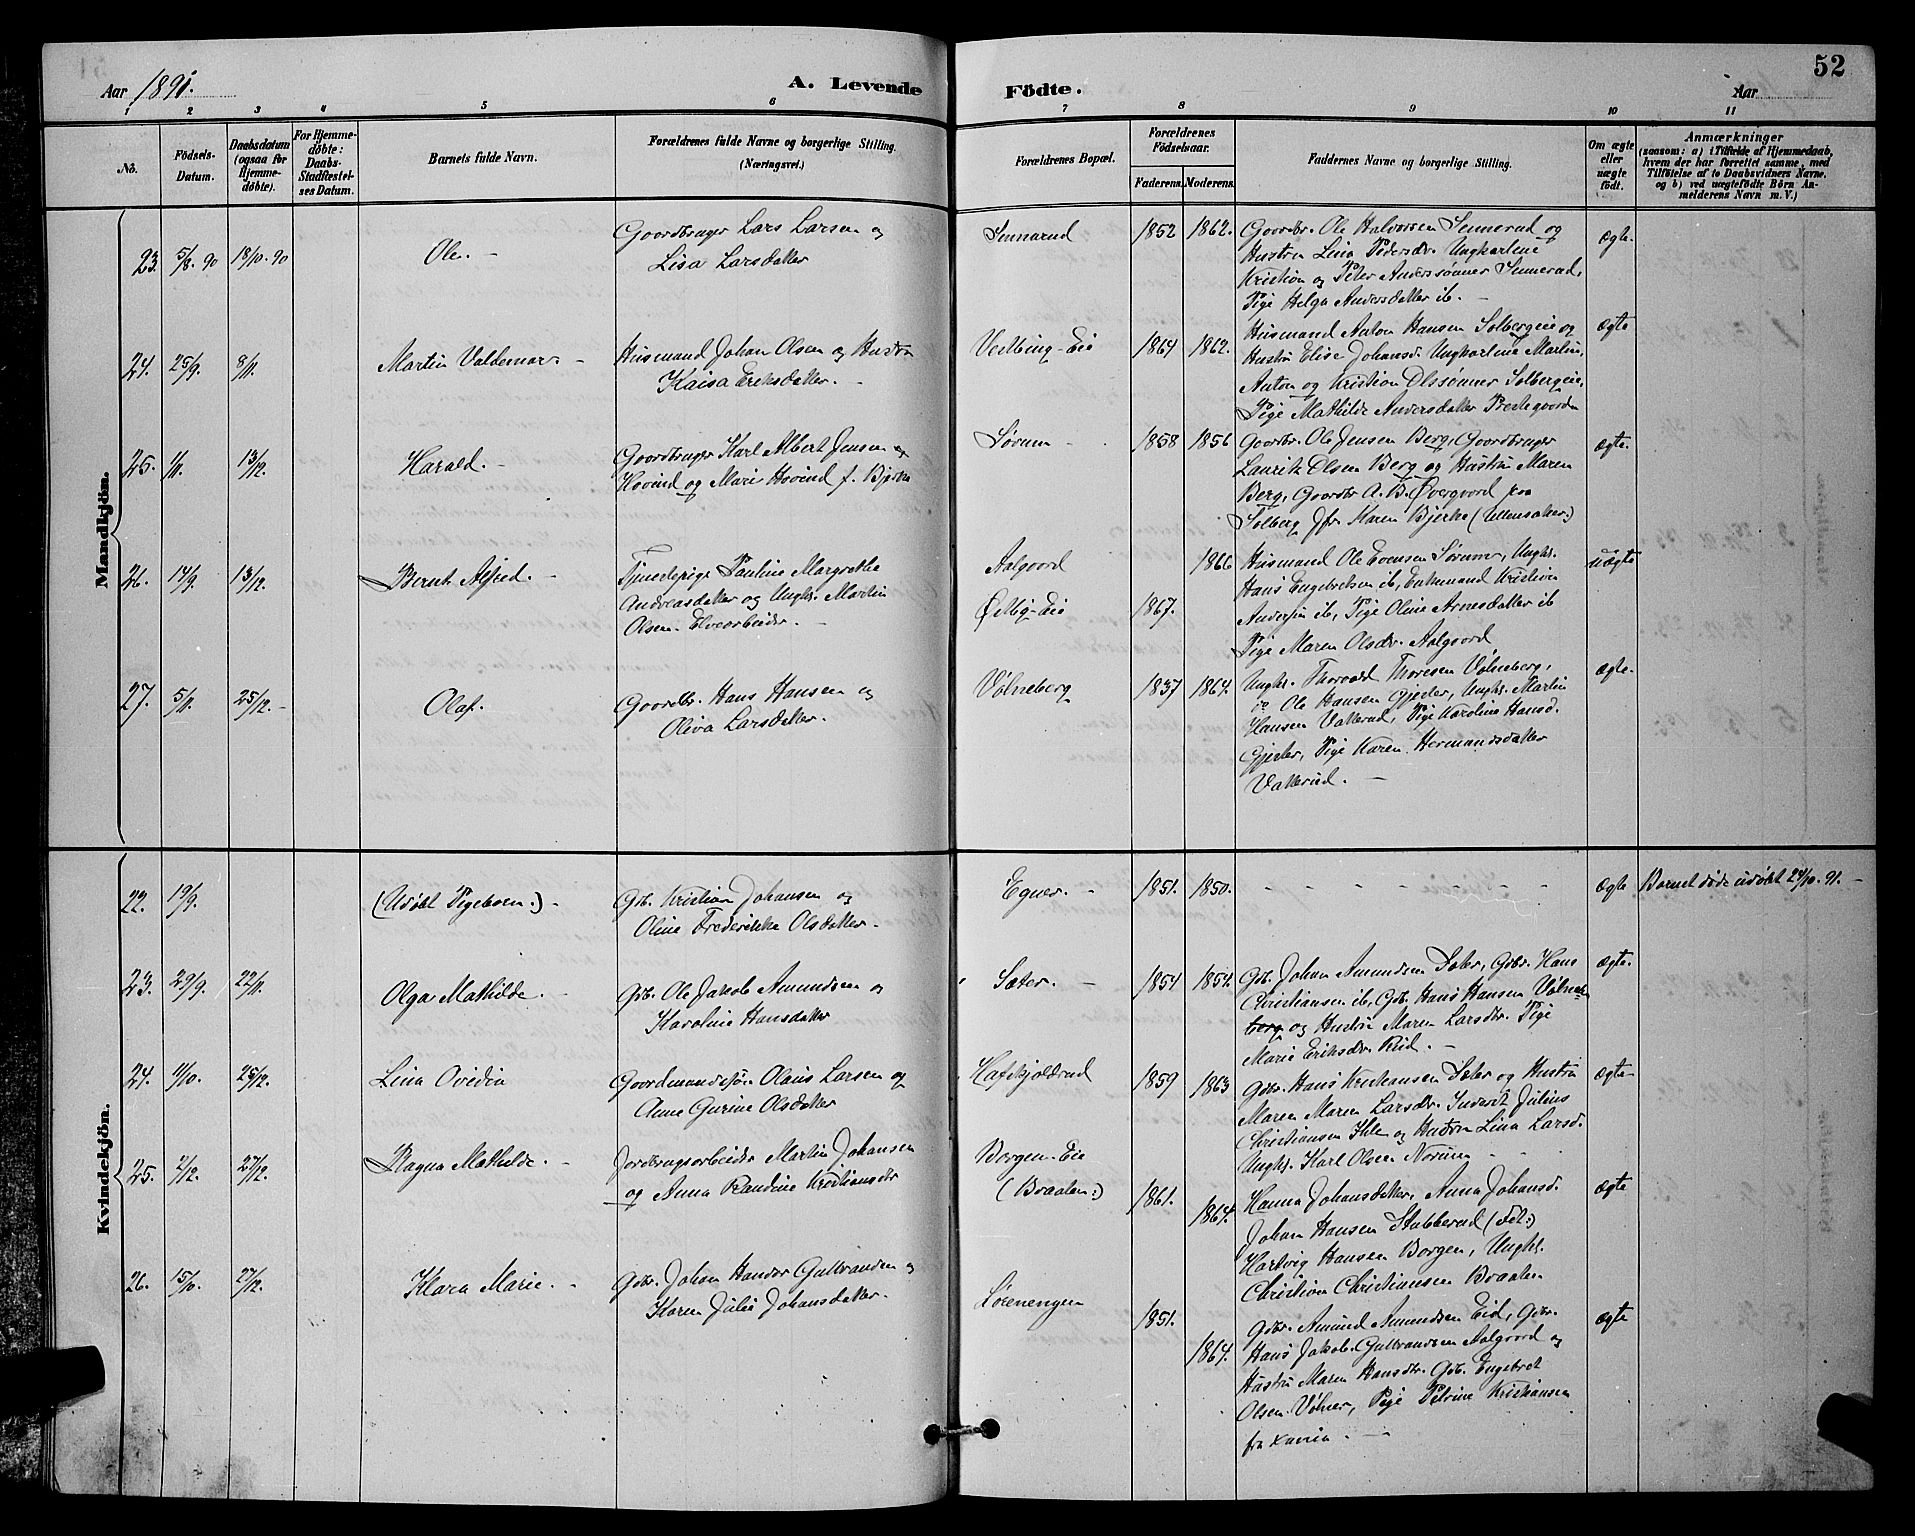 52
Aar 1891.
A. Levende
Födte.
Aar
1 2 3 4 5 6
7 8 9 10 11
No.
Födsels-Datum.
Daabsdatum (ogsaa for Hjemme-döbte).
For Hjemme-döbte: Daabs-Stadfæstel-ses Datum.
Barnets fulde Navn.
Forældrenes fulde Navne og borgerlige Stilling. (Næringsvei.)
Forældrenes Bopæl.
Forældrenes Födselsaar.
Faderens. Moderens.
Faddernes Navne og borgerlige Stilling.
Om ægte eller uægte födt.
Anmærkninger
(saasom: a) i Tilfælde af Hjemmedaab, hvem der har forrettet samme, med Tilföielse af to Daabsvidners Navne. og b) ved uægtefödte Börn An-melderens Navn m. V.)
Mandkjön.
23. 5/8. 90 18/10. 90 Ole. -
Goardbruger Lars Larsen og
Lisa Larsdatter
Sennerud 1852 1862.
Goardbr. Ole Halvorsen Sennerud og
Hustru Lina Pedersdr. Ungkarlene
Kristian og Peter Anderssønner Sennerud,
Pige Helga Andersdatter ib. -
Ægte.
24. 25/9. 8/11. Martin Valdemar. -
Husmand Johan Olsen og Hustru
Kaisa Eriksdatter. -
Vestbing-Eie 1864 1862.
Husmand Anton Hansen Solbergeie og
Hustru Elise Johansd. Ungkarlene Martin,
Anton og Kristian Olssønner Solbergeie,
Pige Mathilde Andersdatter Prestegoorden
ægte
25. 1/11. 13/12. Harald. -
Goardbruger Karl Albert Jensen
Hovind og Marie Hovind f. Bjerke
Sørum - 1858 1856
Goardbr. Ole Jensen Berg, Goardbruger
Laurits Olsen Berg og Hustru Maren
Berg, Goardbr A. B. Øvergoord paa
Solberg Jfr. Karen Bjerke (Ullensaker.)
ægte.
26. 14/9. 13/12. Bernt Alfred. -
Tjenestepige Pauline Margrethe
Andreasdatter og Ungk. Martin
Olsen. Elvearbeider. -
Aalgoord 1866
Østby-Eie 1867.
Husmand Ole Evensen Sørum, Ungk.
Hans Engebretsen ib, Enkemand Kristian
Andersen ib, Pige Oline Arnesdatter ib
Pige Maren Olsdr. Aalgoord
uægte
27. 5/11. 25/12. - Olaf.
Goardbr. Hans Hansen og
Oliva Larsdatter.
Vølneberg 1837 1864.
Ungk. Thorvald Thoresen Vølneberg,
do Ole Hansen Gjester, Ungk. Martin
Hansen Vakkerud, Pige Karoline Hansd.
Gjester, Pige Karen Hermandsdatter
Vakkerud. -
ægte.
Kvindekjön.
22. 19/9. (Udøbt Pigebarn.)
Gdb. Kristian Johansen og
Oline Frederikke Olsdatter.
Egner. - 1851. 1850.
Ægte
Barnet døde udøbt 24/10. 91. -
23. 29/9. 22/11. Olga Mathilde. -
Gdb. Ole Jakob Amundsen og
Karoline Hansdatter
Sæter. - 1854 1854.
Gdb. Johan Amundsen Sæter, Gdbr. Hans
Christiansen ib, Gdb. Hans Hansen Vølne-
berg og Hustru Maren Larsdtr. Pige
Marie Eriksdtr. Rud. -
Ægte.
24. 11/10. 25/12. Lina Ovidia
Goordmandssøn Olaus Larsen og
Anne Gurine Olsdatter
Hafskjoldrud 1859 1863
Gdbr. Hans Kristiansen Sæter og Hustru
Maren Maren Larsdtr. Inderst Julius
Christiansen Ihle og Hustru Lina Larsd.
Ungk. Karl Olsen Norum
ægte
25. 2/12. 27/12. Ragna Mathilde. -
Jordbrugsarbeider Martin Johansen
og Anna Randine Kristiansdtr
Borgen-Eie
(Braaten.) 1861. 1864.
Hanna Johansdatter, Anna Johansd.
Johan Hansen Stubberud
Hartvig Hansen Borgen, Ungk.
Christian Christiansen Braaten
ægte
26. 15/10. 27/12. Klara Marie. -
Gdbr. Johan Hander Gulbrandsen og
Karen Julie Johansdatter.
Lørenengen 1851. 1864.
Gdbr. Amund Amundsen Eid, Gdbr.
Hans Jakob Gulbrandsen Aalgoord og
Hustru Maren Hansdtr. Gdb. Engebret
Olsen Vølner, Pige Petrine Kristiansen
fra
ægte